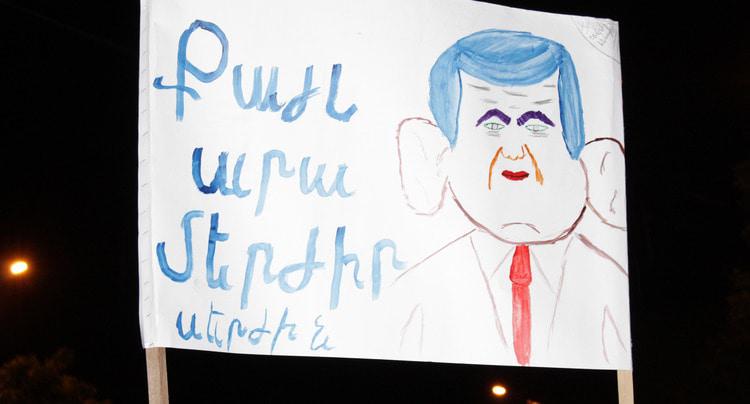 Քայլ
արա
մերժիր
սերժին